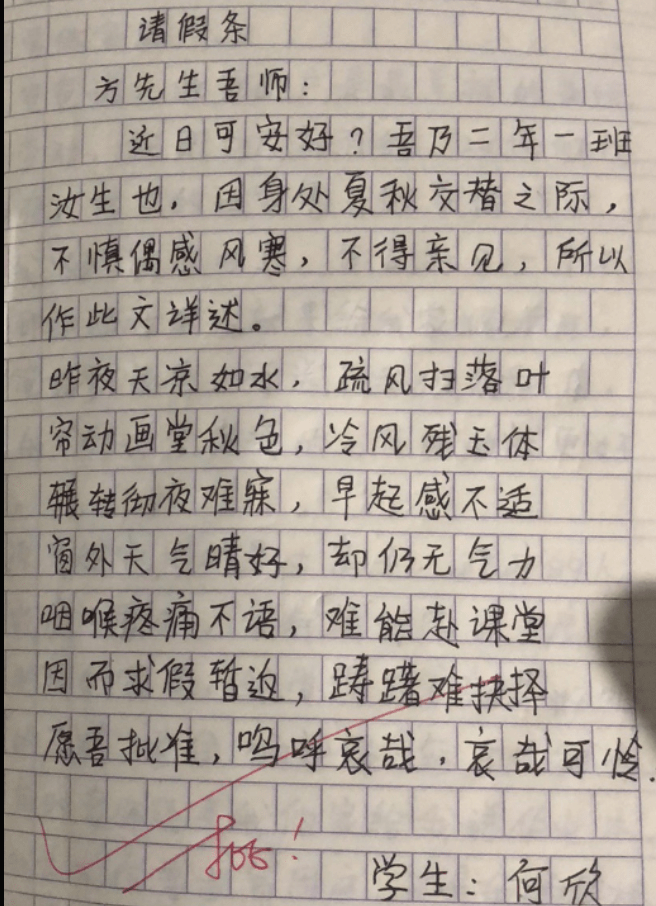 请假条
方先生吾师：
近日可安好？吾乃二年一班
汝生也，因身处夏秋交替之际，
不慎偶感风寒，不得亲见，所以
作此文详述。
昨夜天凉如水，疏风扫落叶
帘动画堂秋色，冷风残玉体
辗转彻夜难寐，早起感不适
窗外天气晴好，却仍无气力
咽喉疼痛不语，难能赴课堂
因而求假暂返，踌躇难抉择
愿吾批准，呜呼哀哉，哀哉可怜.
批！
学生：何欣